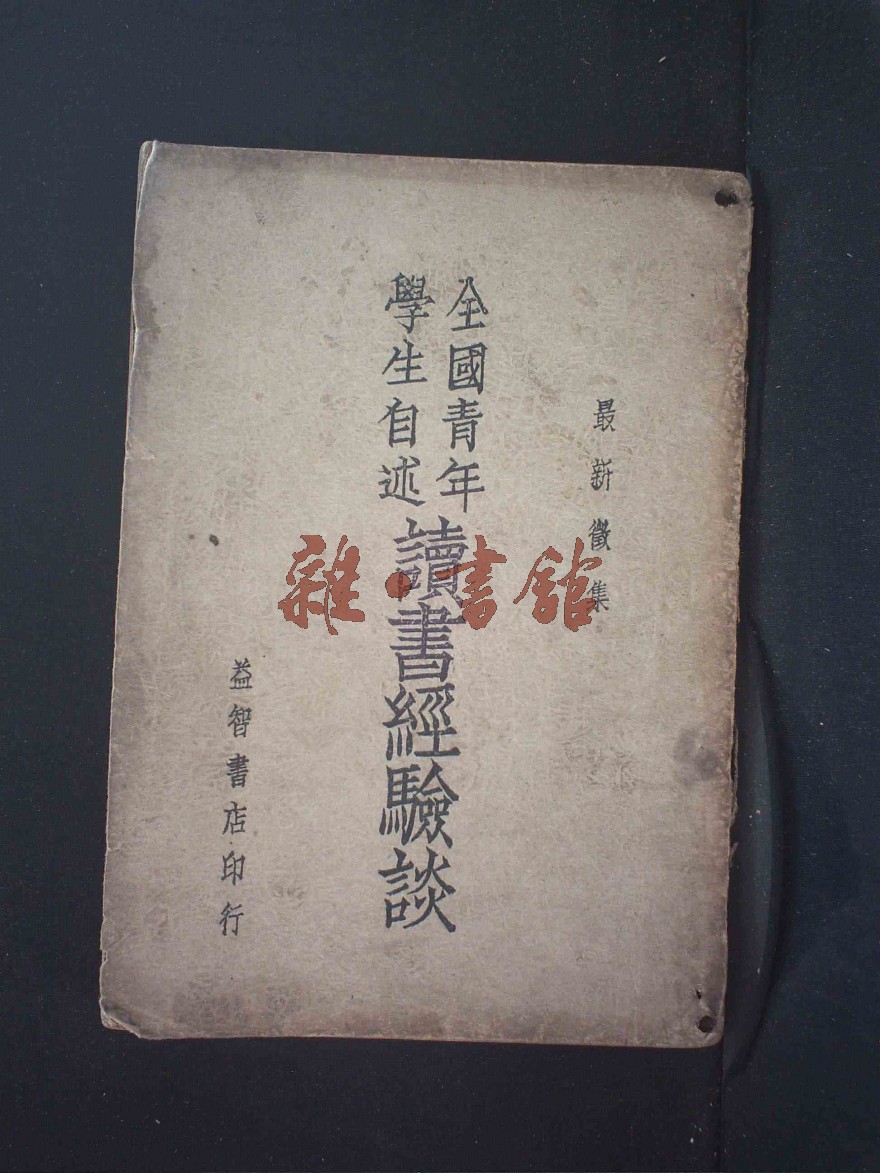 最新徵集
全國青年
學生自述
讀書經驗談
益智書店印行
雜·書館